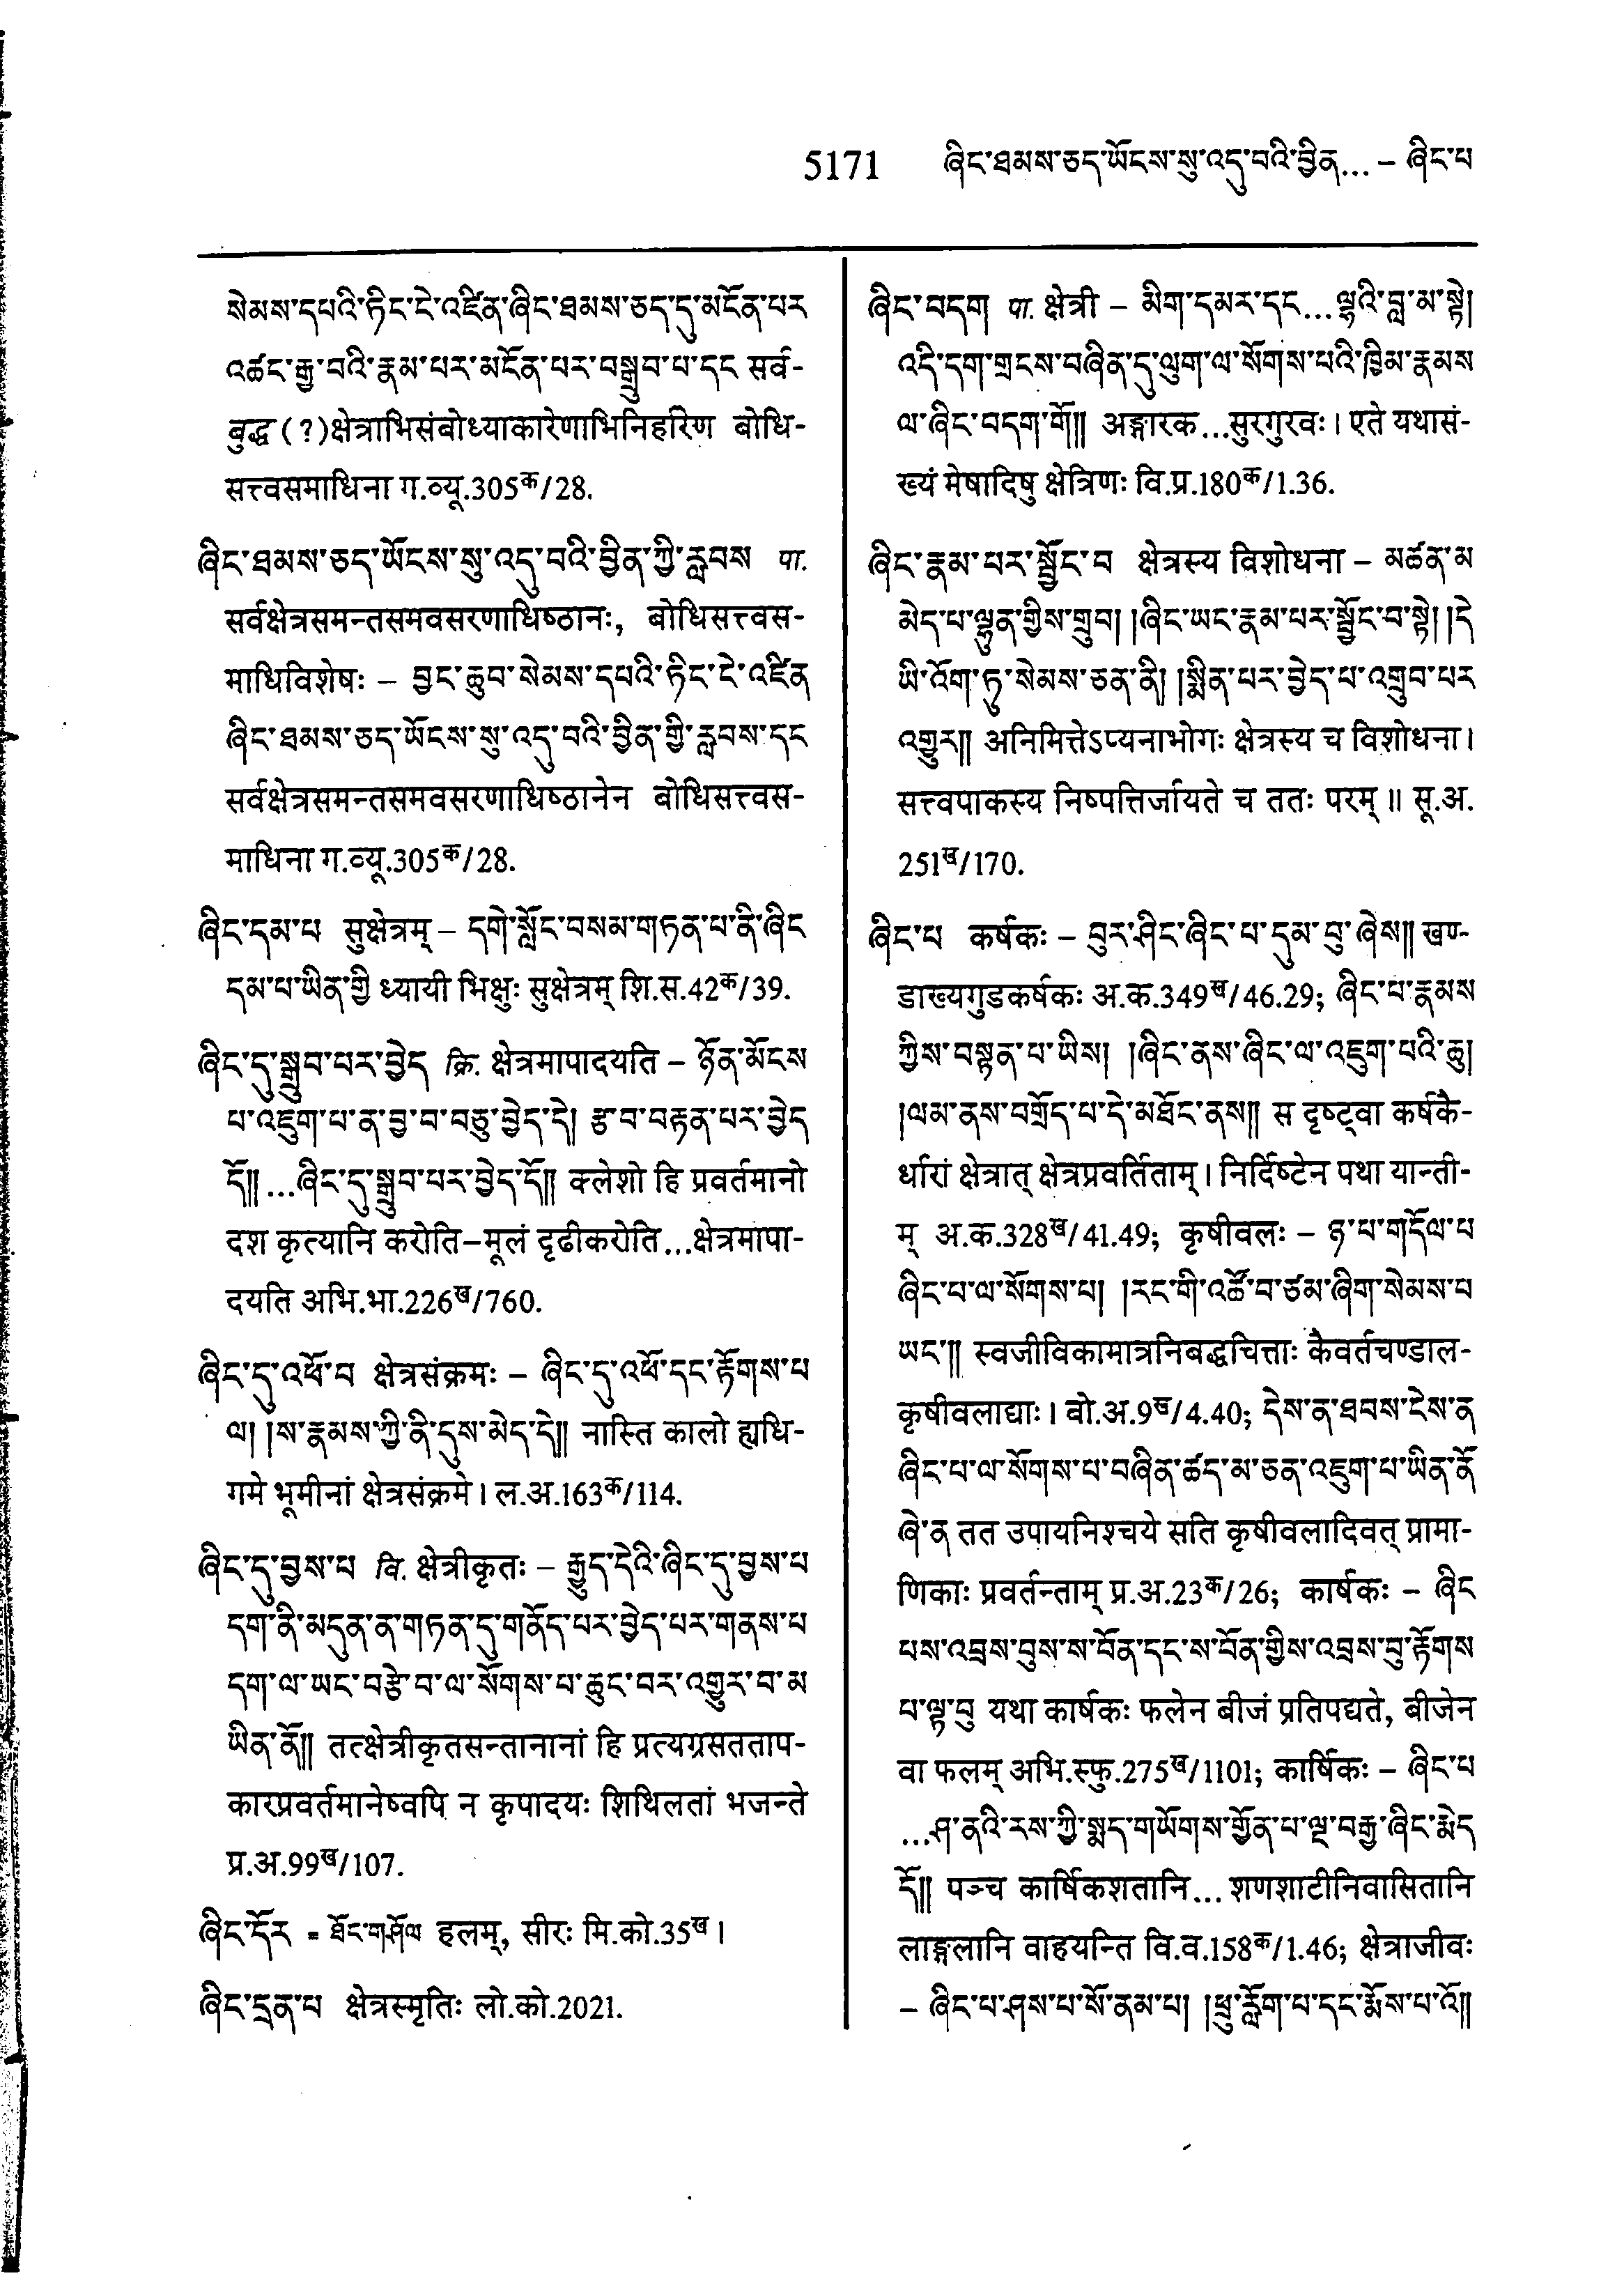 5171 ཞིང་ཐམས་ཅད་ཡོངས་སུ་འདུ་བའི་བྱིན... – ཞིང་པ
སེམས་དཔའི་ཏིང་ངེ་འཛིན་ཞིང་ཐམས་ཅད་དུ་མངོན་པར
འཚང་རྒྱ་བའི་རྣམ་པར་མངོན་པར་བསྒྲུབ་པ་དང སर्व-
बुद्ध (?)क्षेत्राभिसंबोध्याकारेणाभिनिर्हारेण बोधि-
सत्त्वसमाधिना ग.व्यू.305क/28.
ཞིང་ཐམས་ཅད་ཡོངས་སུ་འདུ་བའི་བྱིན་ཀྱི་རླབས पा.
सर्वक्षेत्रसमन्तसमवसरणाधिष्ठानः, बोधिसत्त्वस-
माधिविशेषः – བྱང་ཆུབ་སེམས་དཔའི་ཏིང་ངེ་འཛིན
ཞིང་ཐམས་ཅད་ཡོངས་སུ་འདུ་བའི་བྱིན་གྱི་རླབས་དང
सर्वक्षेत्रसमन्तसमवसरणाधिष्ठानेन बोधिसत्त्वस-
माधिना ग.व्यू.305क/28.
ཞིང་དམ་པ सुक्षेत्रम् – དགེ་སློང་བསམ་གཏན་པ་ནི་ཞིང
དམ་པ་ཡིན་གྱི ध्यायी भिक्षुः सुक्षेत्रम् शि.स.42क/39.
ཞིང་དུ་སྒྲུབ་པར་བྱེད क्रि. क्षेत्रमापादयति – ཉོན་མོངས
པ་འཇུག་པ་ན་བྱ་བ་བཅུ་བྱེད་དེ། རྩ་བ་བརྟན་པར་བྱེད
དོ༎ ...ཞིང་དུ་སྒྲུབ་པར་བྱེད་དོ༎ क्लेशो हि प्रवर्तमानो
दश कृत्यानि करोति–मूलं दृढीकरोति ...क्षेत्रमापा-
दयति अभि.भा.226ख/760.
ཞིང་དུ་འཕོ་བ क्षेत्रसंक्रमः – ཞིང་དུ་འཕོ་དང་རྟོགས་པ
ལ། །ས་རྣམས་ཀྱི་ནི་དུས་མེད་དེ༎ नास्ति कालो ह्यधि-
गमे भूमीनां क्षेत्रसंक्रमे। ल.अ.163क/114.
ཞིང་དུ་བྱས་པ वि. क्षेत्रीकृतः – རྒྱུད་དེའི་ཞིང་དུ་བྱས་པ
དག་ནི་མདུན་ན་གཏན་དུ་གནོད་པར་བྱེད་པར་གནས་པ
དག་ལ་ཡང་བརྩེ་བ་ལ་སོགས་པ་ཆུང་བར་འགྱུར་བ་མ
ཡིན་ནོ༎ तत्क्षेत्रीकृतसन्तानानां हि प्रत्यग्रसतताप-
कारप्रवर्तमानेष्वपि न कृपादयः शिथिलतां भजन्ते
प्र.अ.99ख/107.
ཞིང་དོར = ཐོང་གཤོལ हलम्, सीरः मि.को.35ख।
ཞིང་དྲན་པ क्षेत्रस्मृतिः लो.को.2021.
ཞིང་བདག पा. क्षेत्री – མིག་དམར་དང...ལྷའི་བླ་མ་སྟེ།
འདི་དག་གྲངས་བཞིན་དུ་ལུག་ལ་སོགས་པའི་ཁྱིམ་རྣམས
ལ་ཞིང་བདག་གོ༎ अङ्गारक...सुरगुरवः। एते यथासं-
ख्यं मेषादिषु क्षेत्रिणः वि.प्र.180क/1.36.
ཞིང་རྣམ་པར་སྦྱོང་བ क्षेत्रस्य विशोधना – མཚན་མ
མེད་པ་ལྷུན་གྱིས་གྲུབ། །ཞིང་ཡང་རྣམ་པར་སྦྱོང་བ་སྟེ། །དེ
ཡི་འོག་ཏུ་སེམས་ཅན་ནི། །སྨིན་པར་བྱེད་པ་འགྲུབ་པར
འགྱུར༎ अनिमित्तेऽप्यनाभोगः क्षेत्रस्य च विशोधना।
सत्त्वपाकस्य निष्पत्तिर्जायते च ततः परम्॥ सू.अ.
251ख/170.
ཞིང་པ कर्षकः – བུར་ཤིང་ཞིང་པ་དུམ་བུ་ཞེས༎ खण-
डाख्यगुडकर्षकः अ.क.349ख/46.29; ཞིང་པ་རྣམས
ཀྱིས་བསྟན་པ་ཡིས། །ཞིང་ནས་ཞིང་ལ་འཇུག་པའི་ཆུ།
།ལམ་ནས་བགྲོད་པ་དེ་མཐོང་ནས༎ स दृष्ट्वा कर्षकै-
र्धारां क्षेत्रात् क्षेत्रप्रवर्तिताम्। निर्दिष्टेन पथा यान्ती-
म् अ.क.328ख/41.49; कृषीवलः – ཉ་པ་གདོལ་པ
ཞིང་པ་ལ་སོགས་པ། །རང་གི་འཚོ་བ་ཙམ་ཞིག་སེམས་པ
ཡང་༎ स्वजीविकामात्रनिबद्धचित्ताः कैवर्तचण्डाल-
कृषीवलाद्याः। बो.अ.9ख/4.40; དེས་ན་ཐབས་ངེས་ན
ཞིང་པ་ལ་སོགས་པ་བཞིན་ཚད་མ་ཅན་འཇུག་པ་ཡིན་ནོ
ཞེ་ན तत उपायनिश्चये सति कृषीवलादिवत् प्रामा-
णिकाः प्रवर्तन्ताम् प्र.अ.23क/26; कार्षकः – ཞིང
པས་འབྲས་བུས་ས་བོན་དང་ས་བོན་གྱིས་འབྲས་བུ་རྟོགས
པ་ལྟ་བུ यथा कार्षकः फलेन बीजं प्रतिपद्यते, बीजेन
वा फलम् अभि.स्फु.275ख/1101; कार्षिकः – ཞིང་པ
...ཤ་ནའི་རས་ཀྱི་སྨད་གཡོགས་གྱོན་པ་ལྔ་བརྒྱ་ཞིང་རྨེད
དོ༎ पञ्च कार्षिकशतानि... शणशाटीनिवासितानि
लाङ्गलानि वाहयन्ति वि.व.158क/1.46; क्षेत्राजीवः
– ཞིང་པ་ཤས་པ་སོ་ནམ་པ། །ཕྲུ་རློག་པ་དང་རྨོས་པ་འོ༎